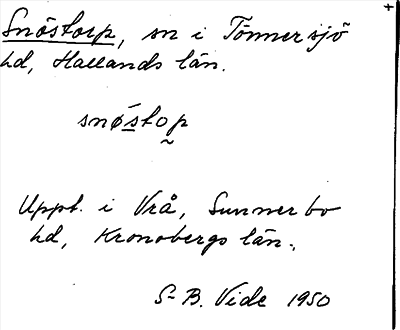 Snöstorp, sn i Tönnersjö
hd, Hallands län.
snø̀stop
Uppt. i Vrå, Sunnerbo
hd, Kronobergs län.
S-B. Vide 1950